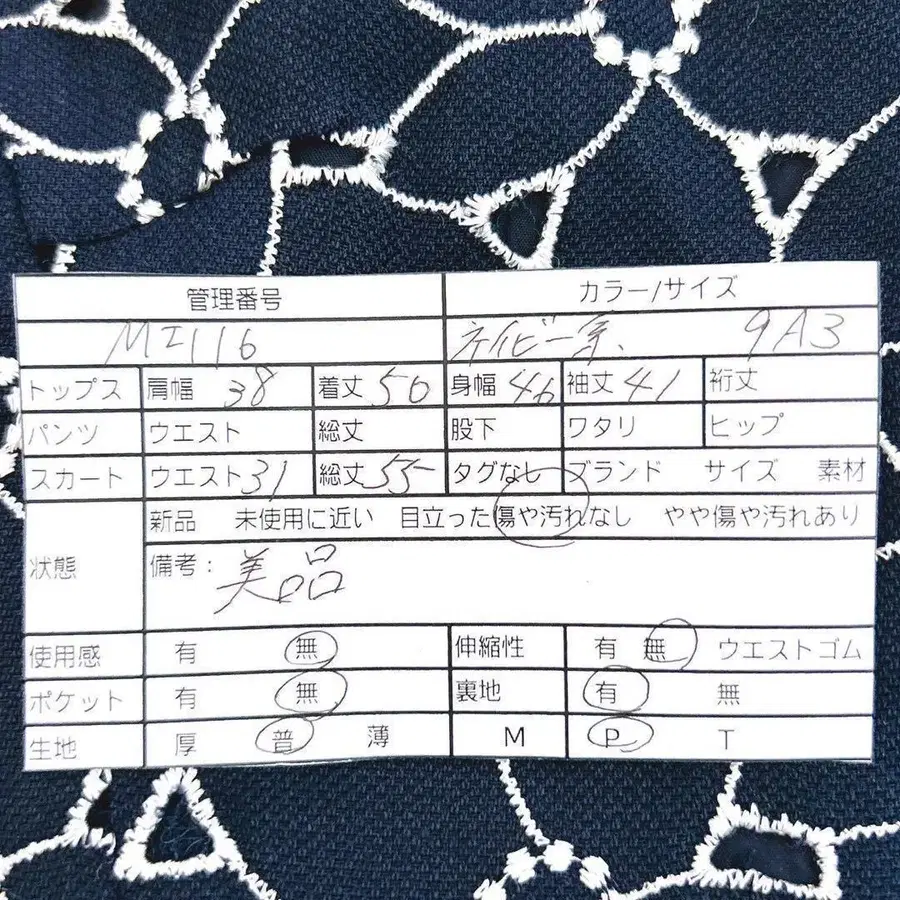 管理番号 カラー/サイズ
MI116 ネイビー系、 9A3
トップス 肩幅 38 着丈 50 身幅 46 袖丈 41 裄丈
パンツ ウエスト 総丈 股下 ワタリ ヒップ
スカート ウエスト 31 総丈 55 タグなし ブランド サイズ 素材
状態 新品 未使用に近い 目立った傷や汚れなし やや傷や汚れあり
備考：美品
使用感 有 無 伸縮性 有 無 ウエストゴム
ポケット 有 無 裏地 有 無
生地 厚 普 薄 M P T